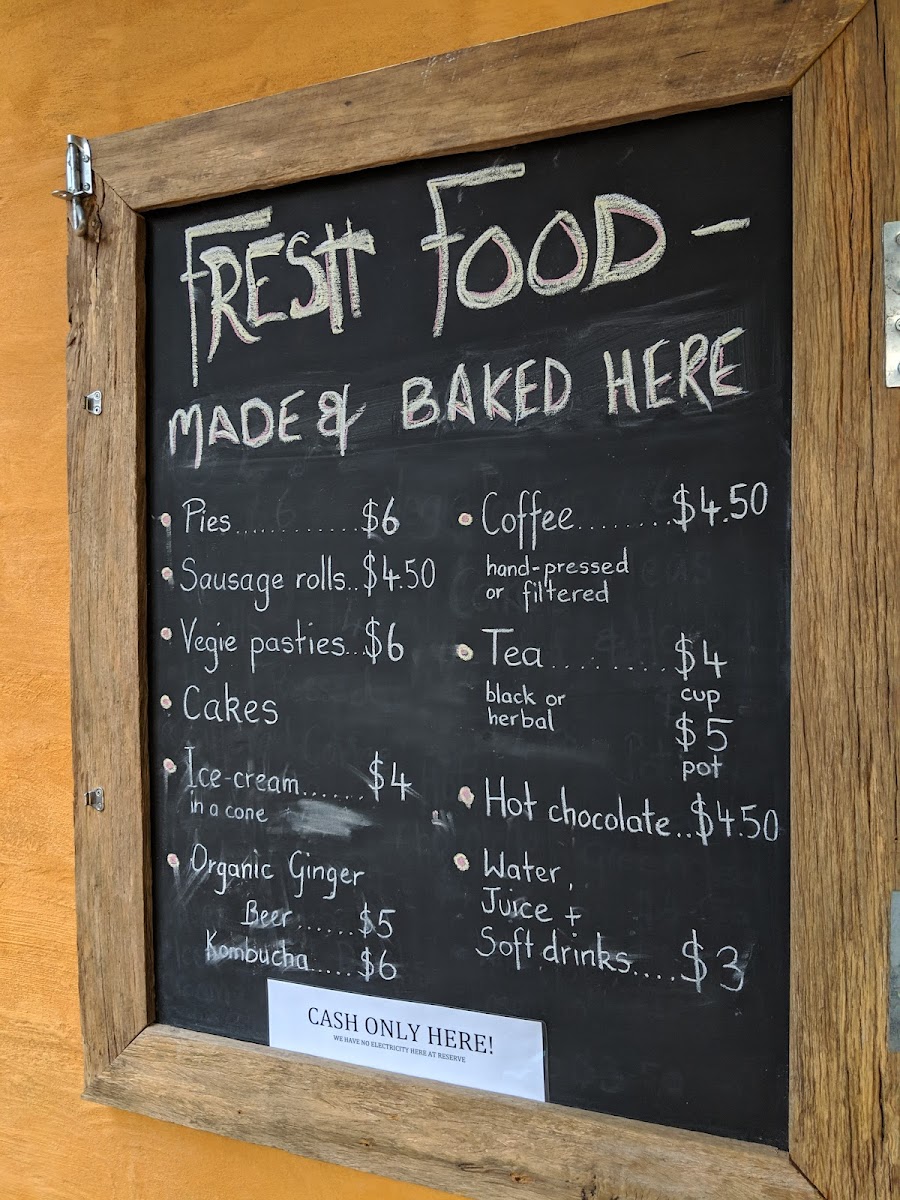 FRESH FOOD -
MADE & BAKED HERE
Pies............$6
Sausage rolls..$4.50
Vegie pasties...$6
Cakes
Ice-cream.......$4
in a cone
Organic Ginger
Beer......$5
Kombucha.....$6
Coffee........$4.50
hand-pressed
or filtered
Tea.........$4
black or cup
herbal $5
pot
Hot chocolate..$4.50
Water,
Juice +
Soft drinks....$3
CASH ONLY HERE!
WE HAVE NO ELECTRICITY HERE AT RESERVE